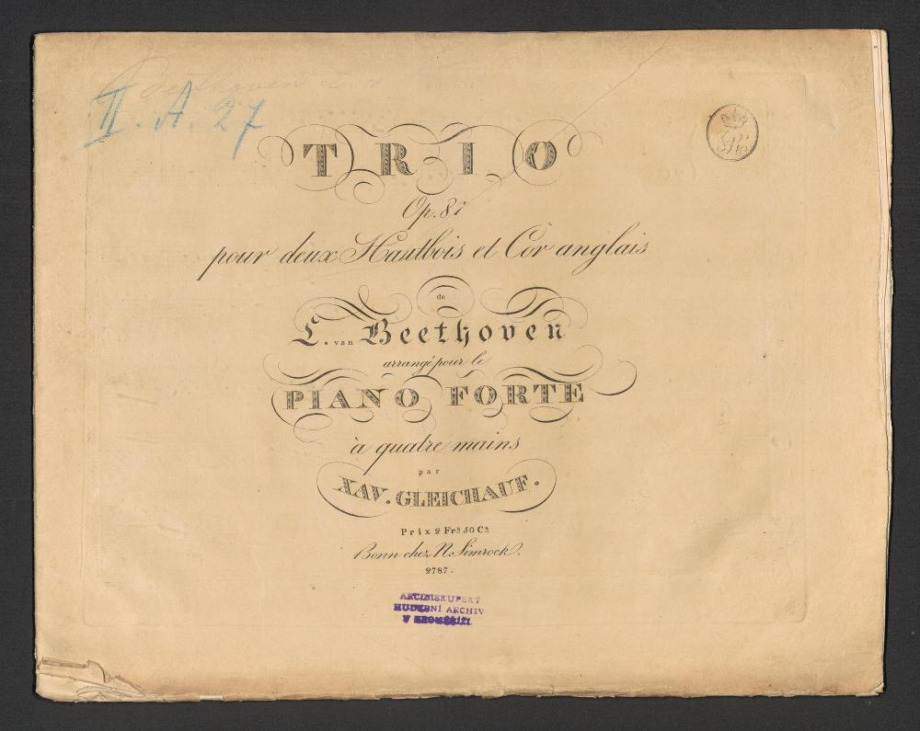 II. A. 27
TRIO
Op. 87
pour deux Hautbois et Cor anglais
de
L. van Beethoven
arrangé pour le
PIANO FORTE
à quatre mains
par
XAV. GLEICHAUF.
Prix 2 Frs 50 Cs
Bonn chez N. Simrock.
2787.
ARCIBISKUPSKÝ
HUDEBNÍ ARCHIV
V KROMĚŘÍŽI